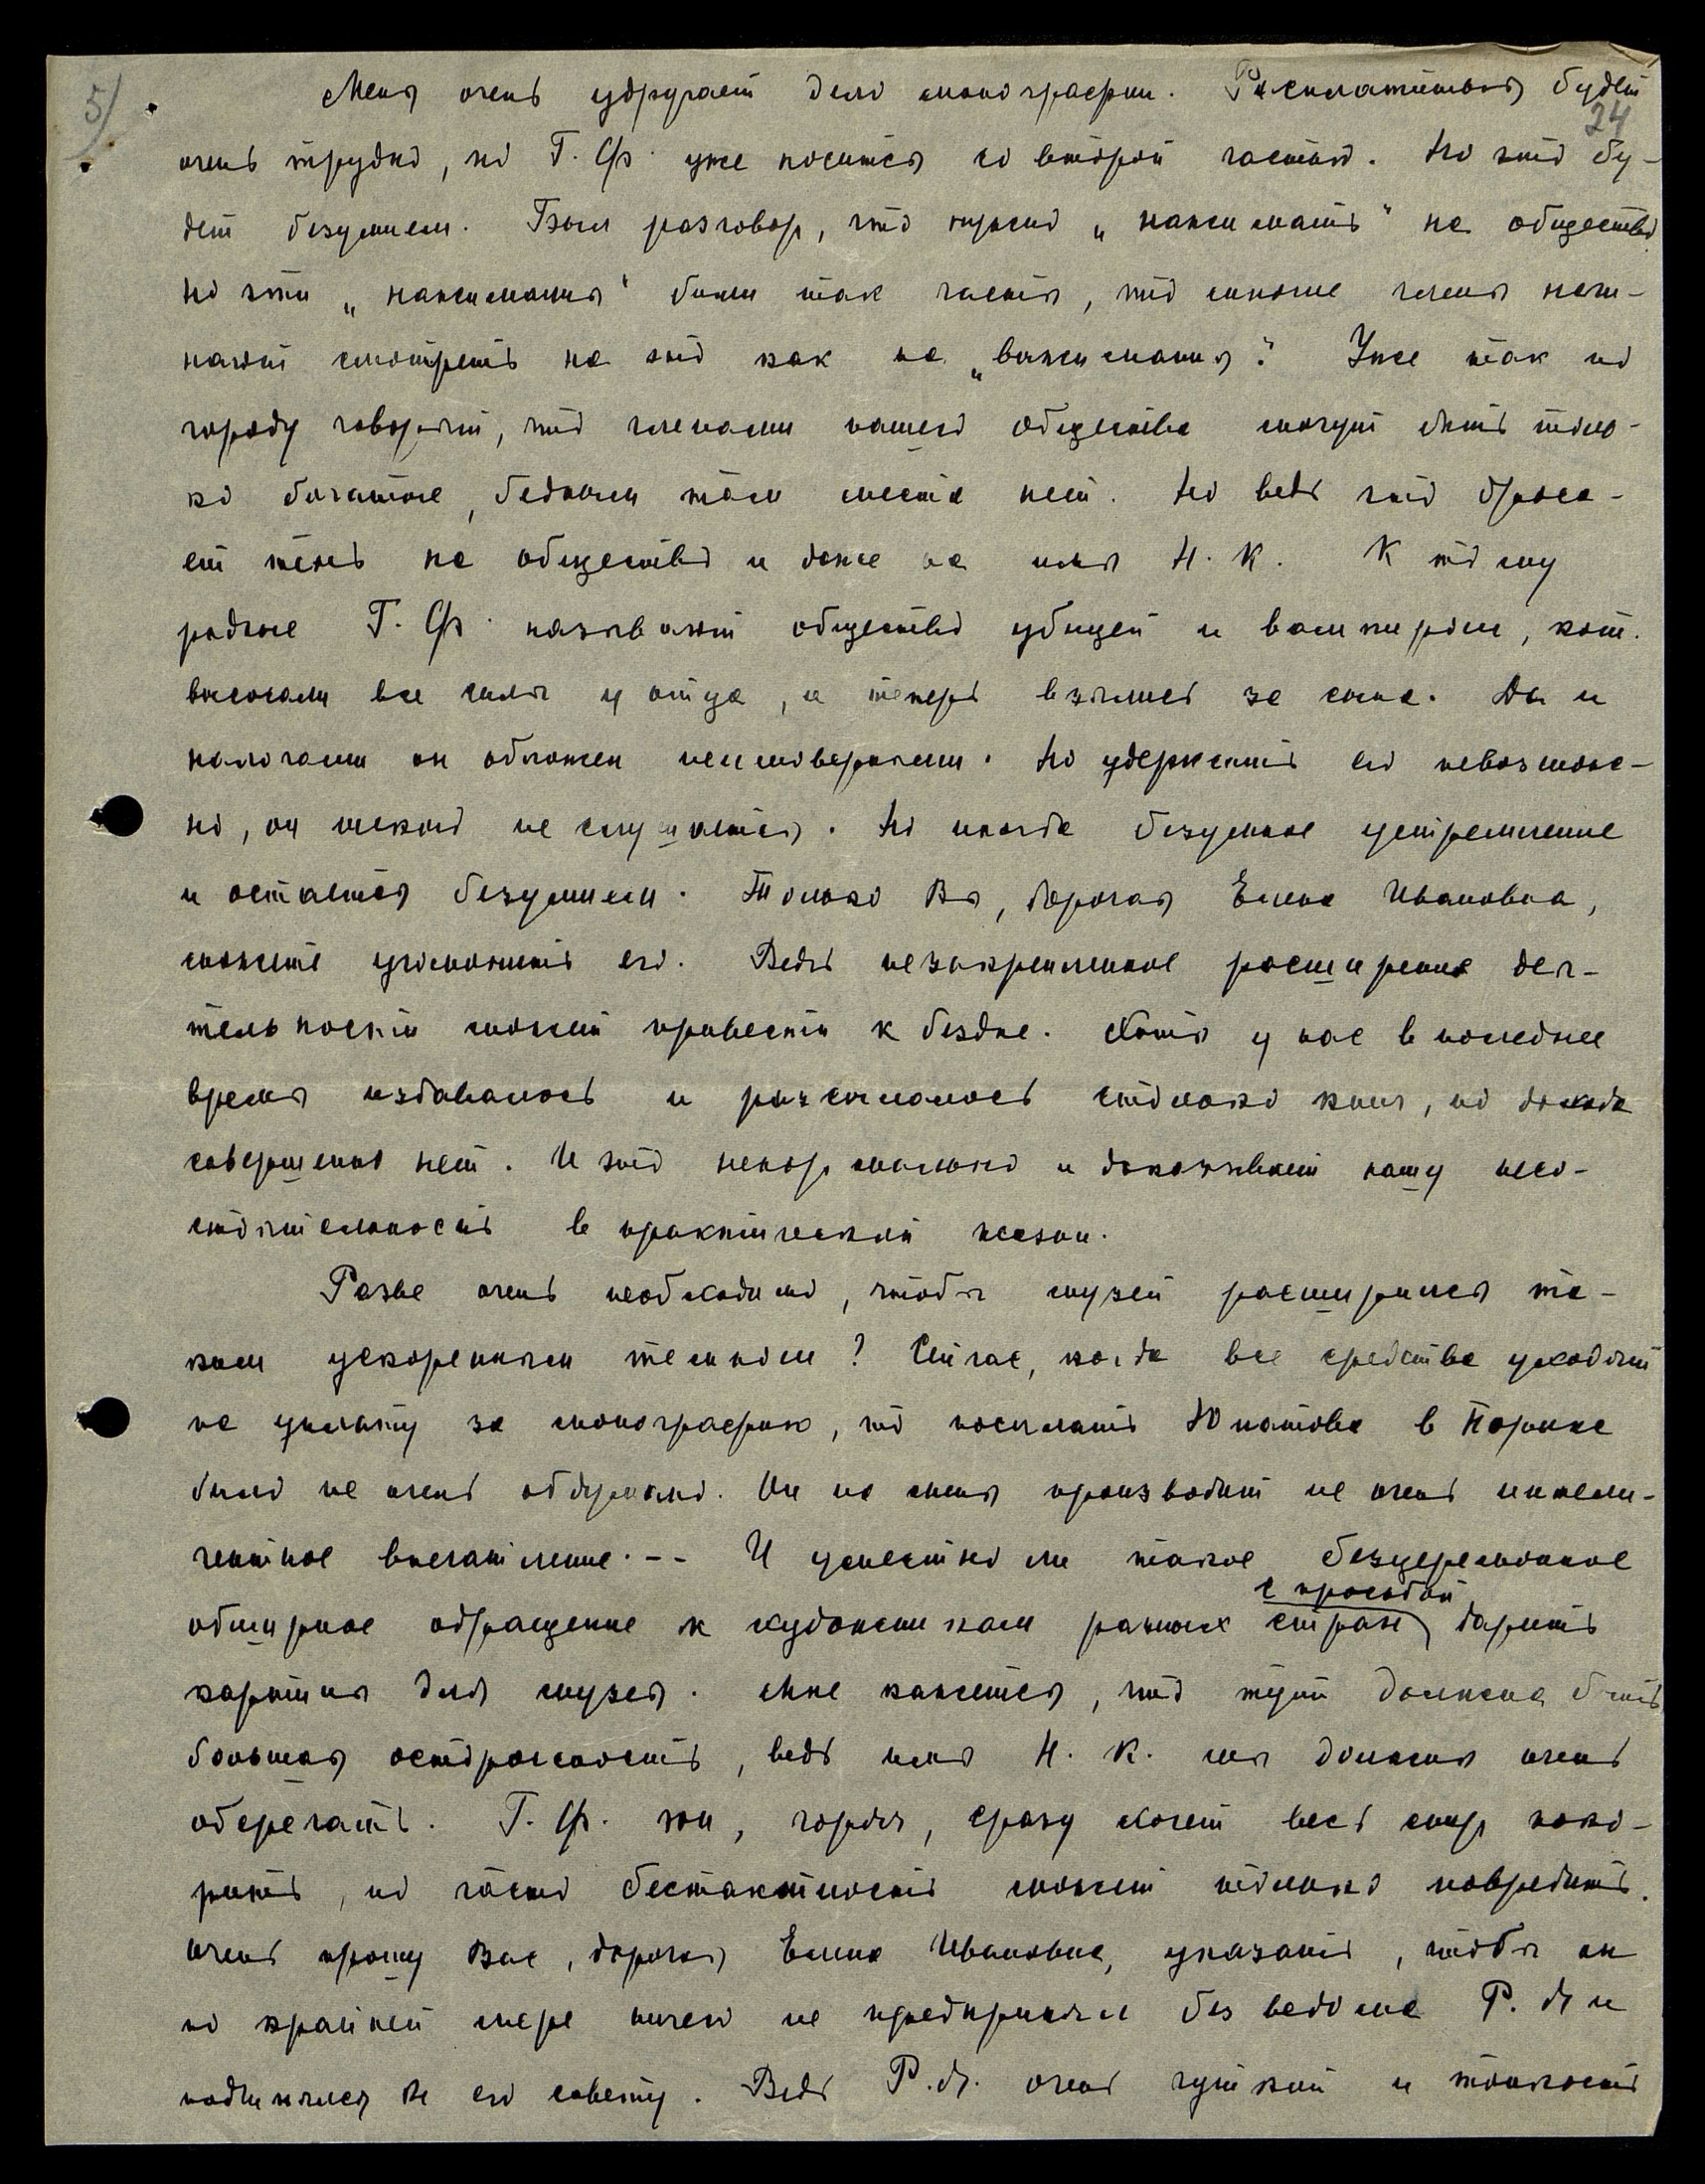 5)
24
Меня очень удручает дело монографии. Расплатиться будет
очень трудно, но Г. Ф. уже носится со второй частью. Но это бу-
дет безумием. Был разговор, что нужно „нажимать" на общество
Но эти „нажимания" были так часты, что многие члены начи-
нают смотреть на это как на „выжимания". Уже так по
городу говорят, что членами нашего общества могут быть толь-
ко богатые, бедным там места нет. Но ведь это броса-
ет тень на общество и даже на имя Н. К. К тому
родные Г. Ф. называют общество убицей и вампиром, кот.
высосали все силы у отца, и теперь взялись за сына. Да и
налогами он обложен неимоверными. Но удержать его невозмож-
но, он никого не слушается. Но иногда безумное устремление
и остается безумием. Только Вы, дорогая Елена Ивановна,
можете угомонить его. Ведь незакрепленное расширение дея-
тельности может привести к бездне. Хотя у нас в последнее
время издавалось и рассылалось столько книг, но дохода
совершенно нет. И это ненормально и доказывает нашу несо-
стоятельность в практической жизни.
Разве очень необходимо, чтобы музей расширялся та-
ким ускоренным темпом? Сейчас, когда все средства уходят
на уплату за монографию, то посылать Юпатова в Париж
было не очень обдумано. Он на меня производит не очень интели-
гентное впечатление. -- И уместно ли такое безцеремонное
с просьбой
обширное обращение к художникам разных стран дарить
картины для музея. Мне кажется, что тут должна быть
большая осторожность, ведь имя Н. К. мы должны очень
оберегать. Г. Ф. же, горя, сразу хочет весь мир поко-
рить, но часто бестактность может только повредить.
Очень прошу Вас, дорогая Елена Ивановна, указать, чтобы он
по крайней мере ничего не предпринял без ведома Р. Я и
подчинялся его совету. Ведь Р. Я. очень чуткий и тонкость